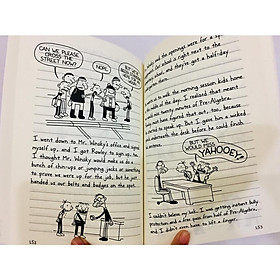 CAN WE PLEASE
CROSS THE
STREET NOW?
NOPE.
I went down to Mr. Winsky's office and signed
myself up, and I got Rowley to sign up, too.
I thought Mr. Winsky would make us do a
bunch of chin-ups or jumping jacks or something
to prove we were up for the job, but he just
handed us our belts and badges on the spot.
the openings were for a
school is right next to the
school, and they've got a half-day
to walk the morning session kids home
of the day. I realised that meant
twenty minutes of Pre-Algebra.
have figured that out, too, because
to speak up. But I gave him a wicked
underneath the desk before he could finish
WOULD MISS
YAHOOEY!
I couldn't believe my luck. I was getting instant bully
protection and a free pass from half of Pre-Algebra,
and I didn't even have to lift a finger.
153